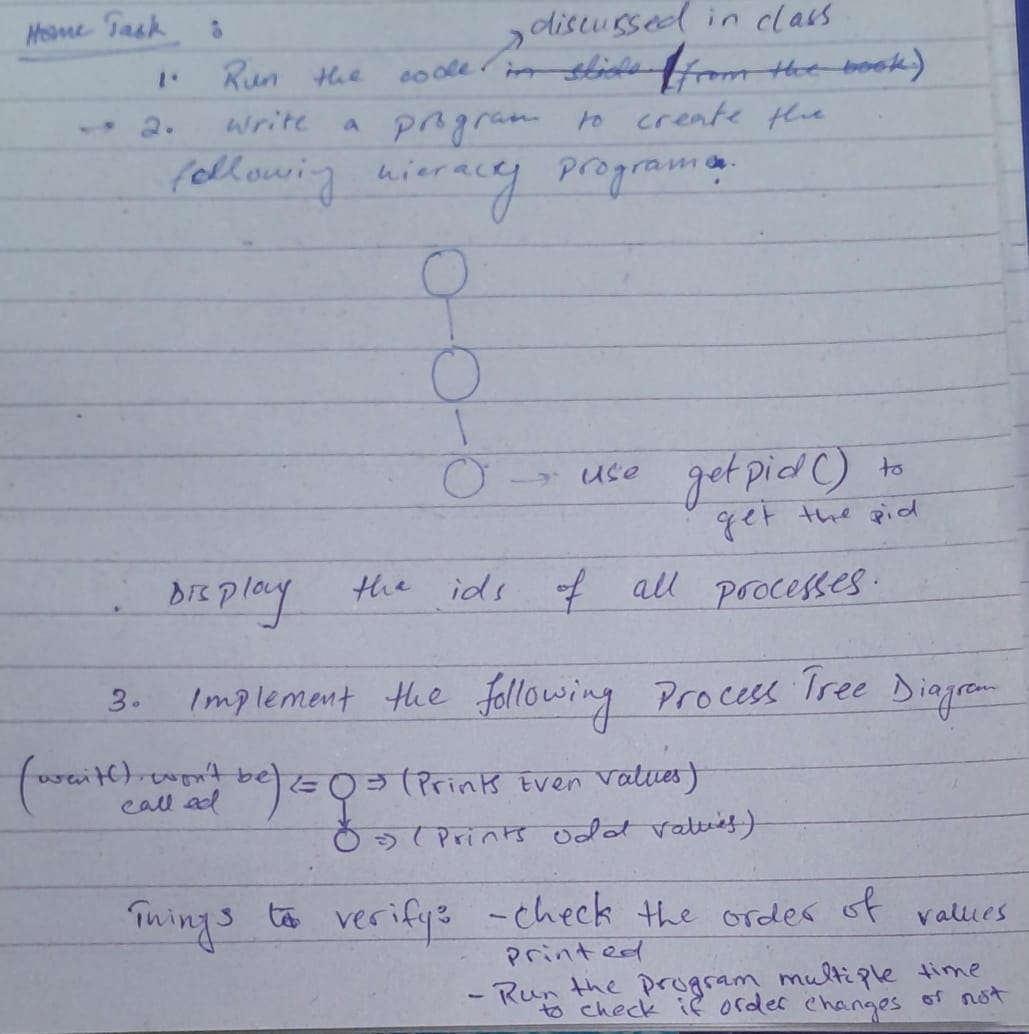 Home Task :
discussed in class
1. Run the code in slide (from the book)
→ 2. Write a program to create the
following hieracy programs.
→ use getpid() to
get the pid
. Display the ids of all processes.
3. Implement the following Process Tree Diagram
(wait() won't be called) <= => (Prints Even values)
=> (Prints odd values)
Things to verify: - check the order of values
printed
- Run the program multiple time
to check if order changes or not